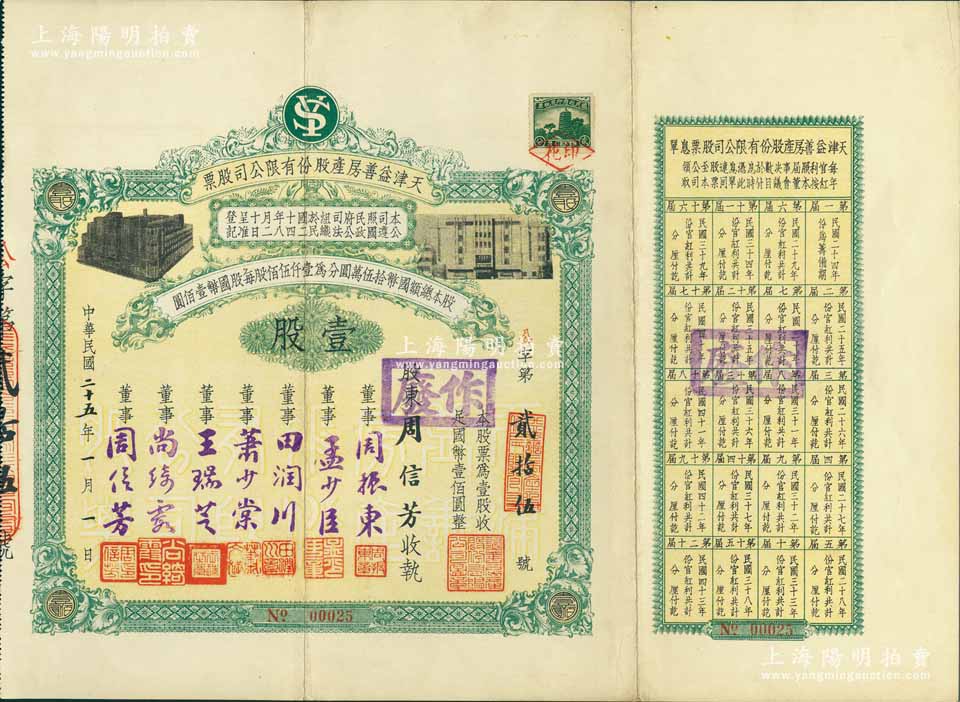 上海陽明拍賣
www.yangmingauction.com
SY
印花
天津益善房產股份有限公司股票
本公司遵照國民政府公司法組織於民國二十四年八月十二日呈准登記
股本總額國幣拾伍萬圓分為壹仟伍佰股每股國幣壹佰圓
壹股
字第貳拾伍號
本股票為壹股收
足國幣壹佰圓整
股東周信芳收執
作廢
董事周振東
董事孟少臣
董事田潤川
董事蕭少棠
董事王瑞芝
董事尚綺霞
董事周信芳
中華民國二十五年一月一日
No 00025
上海陽明拍賣
www.yangmingauction.com
天津益善房產股份有限公司股票息單
第一屆
民國二十四年
份為籌備期
分厘付訖
第二屆
民國二十五年
份官紅利共計
分厘付訖
第三屆
民國二十六年
份官紅利共計
分厘付訖
第四屆
民國二十七年
份官紅利共計
分厘付訖
第五屆
民國二十八年
份官紅利共計
分厘付訖
第六屆
民國二十九年
份官紅利共計
分厘付訖
第七屆
民國三十年
份官紅利共計
分厘付訖
第八屆
民國三十一年
份官紅利共計
分厘付訖
第九屆
民國三十二年
份官紅利共計
分厘付訖
第十屆
民國三十三年
份官紅利共計
分厘付訖
第十一屆
民國三十四年
份官紅利共計
分厘付訖
第十二屆
民國三十五年
份官紅利共計
分厘付訖
第十三屆
民國三十六年
份官紅利共計
分厘付訖
第十四屆
民國三十七年
份官紅利共計
分厘付訖
第十五屆
民國三十八年
份官紅利共計
分厘付訖
第十六屆
民國三十九年
份官紅利共計
分厘付訖
第十七屆
民國四十年
份官紅利共計
分厘付訖
第十八屆
民國四十一年
份官紅利共計
分厘付訖
第十九屆
民國四十二年
份官紅利共計
分厘付訖
第二十屆
民國四十三年
份官紅利共計
分厘付訖
No 00025
上海陽明拍賣
www.yangmingauction.com